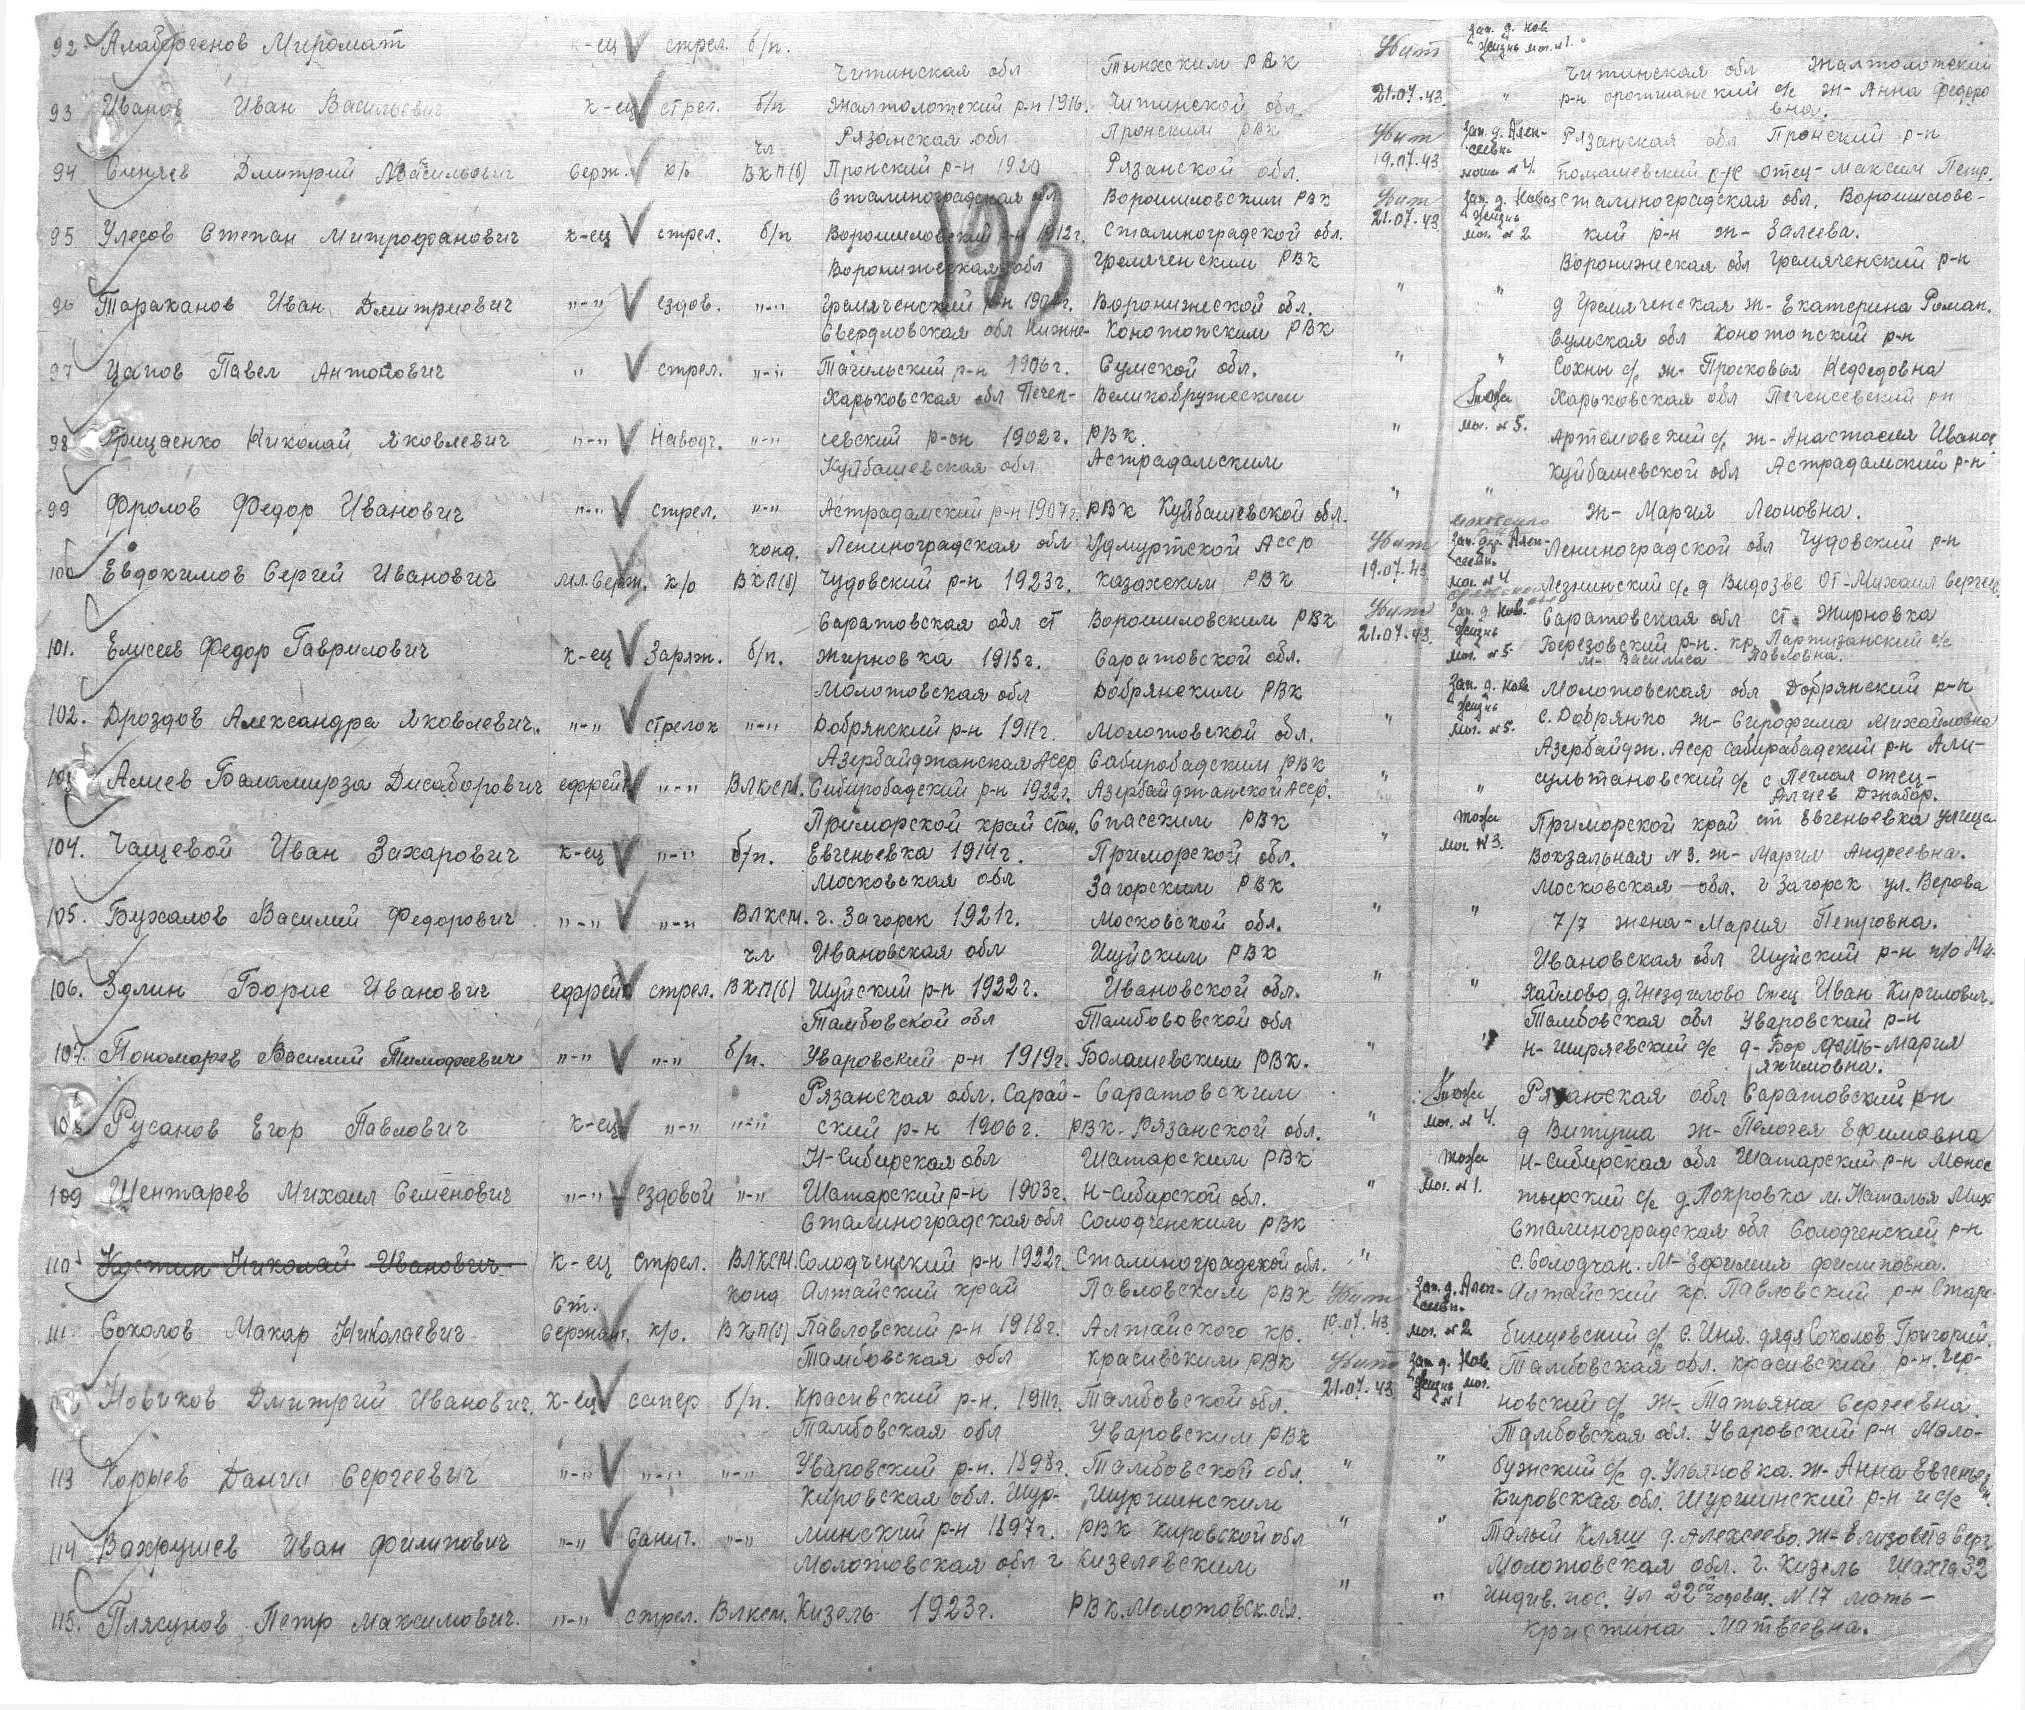 92. Алабергенов Миромат к-ец стрел. б/п. Убит Зап. д. Нов. Жизнь мог. №1.
Читинская обл Тынхским РВК Читинская обл Жалтолотский
93 Иванов Иван Васильевич к-ец стрел. б/п Жалтолотский р-н 1916. Читинской обл. 21.07.43. " р-н с/с ж- Анна Федоровна.
Рязанская обл Пронским РВК Убит Зап. д. Алексеевк. Рязанская обл Пронский р-н
94 Синяев Дмитрий Серж. к/о чл ВКП(б) Пронский р-н 1920 Рязанской обл. 19.07.43 №4. с/с отец- Максим Петр.
Сталиноградская обл Ворошиловским РВК Убит Зап. д. Новая Сталиноградская обл. Ворошиловс-
95 Улесов Степан Митрофанович к-ец стрел. б/п Ворошиловский р-н 1912г. Сталиноградской обл. 21.07.43 Жизнь мог. №2 кий р-н ж- Залеева.
193
Воронижеская обл Гремяченским РВК Воронижская обл Гремяченский р-н
96 Тараканов Иван Дмитриевич "-" ездов. "-" Гремяченский р-н Воронижеской обл. " " д Гремяченская ж- Екатерина Роман.
Свердловская обл Нижне- Конотопским РВК Сумская обл Конотопский р-н
97 Цапов Павел Антонович " стрел. "-" Тагильский р-н 1906г. Сумской обл. " " Сохны с/с ж- Просковья Нефедовна
Харьковская обл Печен- Великобружским тоже Харьковская обл Печенсевский рн
98 Грищаенко Николай Яковлевич "-" Наводч. "-" севский р-он 1902г. РВК. " мог. №5. Артемовский с/с ж- Анастасия Иванов
Куйбашевская обл Астрадамским Куйбашевской обл Астрадамский р-н
99 Фролов Федор Иванович "-" стрел. "-" Астрадамский р-н 1907г. РВК Куйбашевской обл. " " ж- Мария Леоновна.
канд. Лениноградская обл Удмуртской Асср Убит Зап. д. Алексеевк. Лениноградской обл Чудовский р-н
100 Евдокимов Сергей Иванович мл.серж. к/о ВКП(б) Чудовский р-н 1923г. Казахским РВК 19.07.43 мог №4 Лезнинский с/с д Видозве От-Михаил Сергеев.
Саратовская обл ст Ворошиловским РВК Убит Зап. д. Нов. Саратовская обл ст. Жирновка
101. Елисеев Федор Гаврилович к-ец Заряж. б/п. Жирновка 1915г. Саратовской обл. 21.07.43 Жизнь мог. №5 Березовский р-н. кр. Партизанский с/с
м- Василиса Павловна.
Молотовская обл Добрянским РВК Зап. д. Нова Молотовская обл Добрянский р-н
102. Дроздов Александра Яковлевич. "-" стрелок "-" Добрянский р-н 1911г. Молотовской обл. " Жизнь мог. №5. с. Добрянко ж- Сирофима Михайловна
Азербайджанская Асср Сабиробадским РВК Азербайдж. Асср Сабирабадский р-н Али-
103 Алиев Баламирза Дисаборович ефрей "-" Влксм. Сибиробадский р-н 1922г. Азербайджанской Асср. " " султановский с/с с Петлал отец-
Алиев Джабор.
Приморской край стан. Спасским РВК тоже Приморской край ст Евгеньевка улица
104. Чащевой Иван Захарович к-ец "-" б/п. Евгеньевка 1914г. Приморской обл. " мог. №3. Вокзальная №3. ж- Мария Андреевна.
Московская обл Загорским РВК Московская обл. г Загорск ул. Верова
105. Бужалов Василий Федорович "-" "-" Влксм. г. Загорск 1921г. Московской обл. " " 7/7 жена- Мария Петровна.
чл Ивановская обл Шуйским РВК Ивановская обл Шуйский р-н п/о Ми-
106. Здлин Борис Иванович ефрей стрел. ВКП(б) Шуйский р-н 1922г. Ивановской обл. " " хайлово д. Гнездилово Отец Иван Кирилович.
Тамбовской обл Тамбововской обл Тамбовская обл Уваровский р-н
107. Пономарев Василий Тимофеевич "-" "-" б/п. Уваровский р-н 1919г. Болашевским РВК. " Н- Ширяевский с/с д- Бор мать-Мария
Якимовна.
Рязанская обл. Сарай- Саратовским тоже Рязанская обл Саратовский р-н
108 Русанов Егор Павлович к-ец "-" "-" ский р-н 1906г. РВК. Рязанской обл. " мог. №4. д Витуша ж- Пелогея Ефимовна
Н-Сибирская обл Шатарским РВК тоже Н-Сибирская обл Шатарский р-н Монос
109 Шентарев Михаил Семенович "-" ездовой "-" Шатарский р-н 1903г. Н-Сибирской обл. " мог. №1. тырский с/с д. Покровка м. Наталья Мих
Сталиноградская обл Солодченским РВК Сталиноградская обл Солодченский р-н
110 Костин Николай Иванович к-ец стрел. Влксм. Солодченский р-н 1922г. Сталиноградской обл. " с. Солодчан. М- Зфимия Филиповна.
ст. канд Алтайский край Павловским РВК Убит Зап. д. Алексеевк. Алтайский кр. Павловский р-н Старо-
111 Соколов Макар Николаевич Сержант. к/о. ВКП(б) Павловский р-н 1918г. Алтайского кр. 10.07.43 мог. №2 с/с с. Иня. дядя Соколов Григорий.
Тамбовская обл Красивским РВК Убит Зап. д. Нов. Тамбовская обл. Красивский р-н. Чер-
112 Новиков Дмитрий Иванович. к-ец сапер б/п. Красивский р-н. 1911г. Тамбовской обл. 21.07.43 Жизнь мог. №1 новский с/с ж- Татьяна Сергеевна.
Тамбовская обл Уваровским РВК Тамбовская обл. Уваровский р-н Мало-
113 Корыев Данил Сергеевич "-" "-" "-" Уваровский р-н. 1898г. Тамбовской обл. " " бужский с/с д. Ульяновка. ж- Анна Евгеньевн.
Кировская обл. Шур- Шурминским Кировская обл. Шурминский р-н и с/с
114 Вахрушев Иван Филипович "-" Санит. "-" минский р-н 1897г. РВК Кировской обл " " Талый Кляш д. Алексеево. ж- Елизовета Серг.
Молотовская обл г Кизелевским Молотовская обл. г. Кизель Шахта 32
115. Плясунов Петр Максимович. "-" стрел. Влксм. Кизель 1923г. РВК. Молотовск. обл. " " Индив. пос. ул 22ой годовщ. №17 мать-
Кристина Матвеевна.